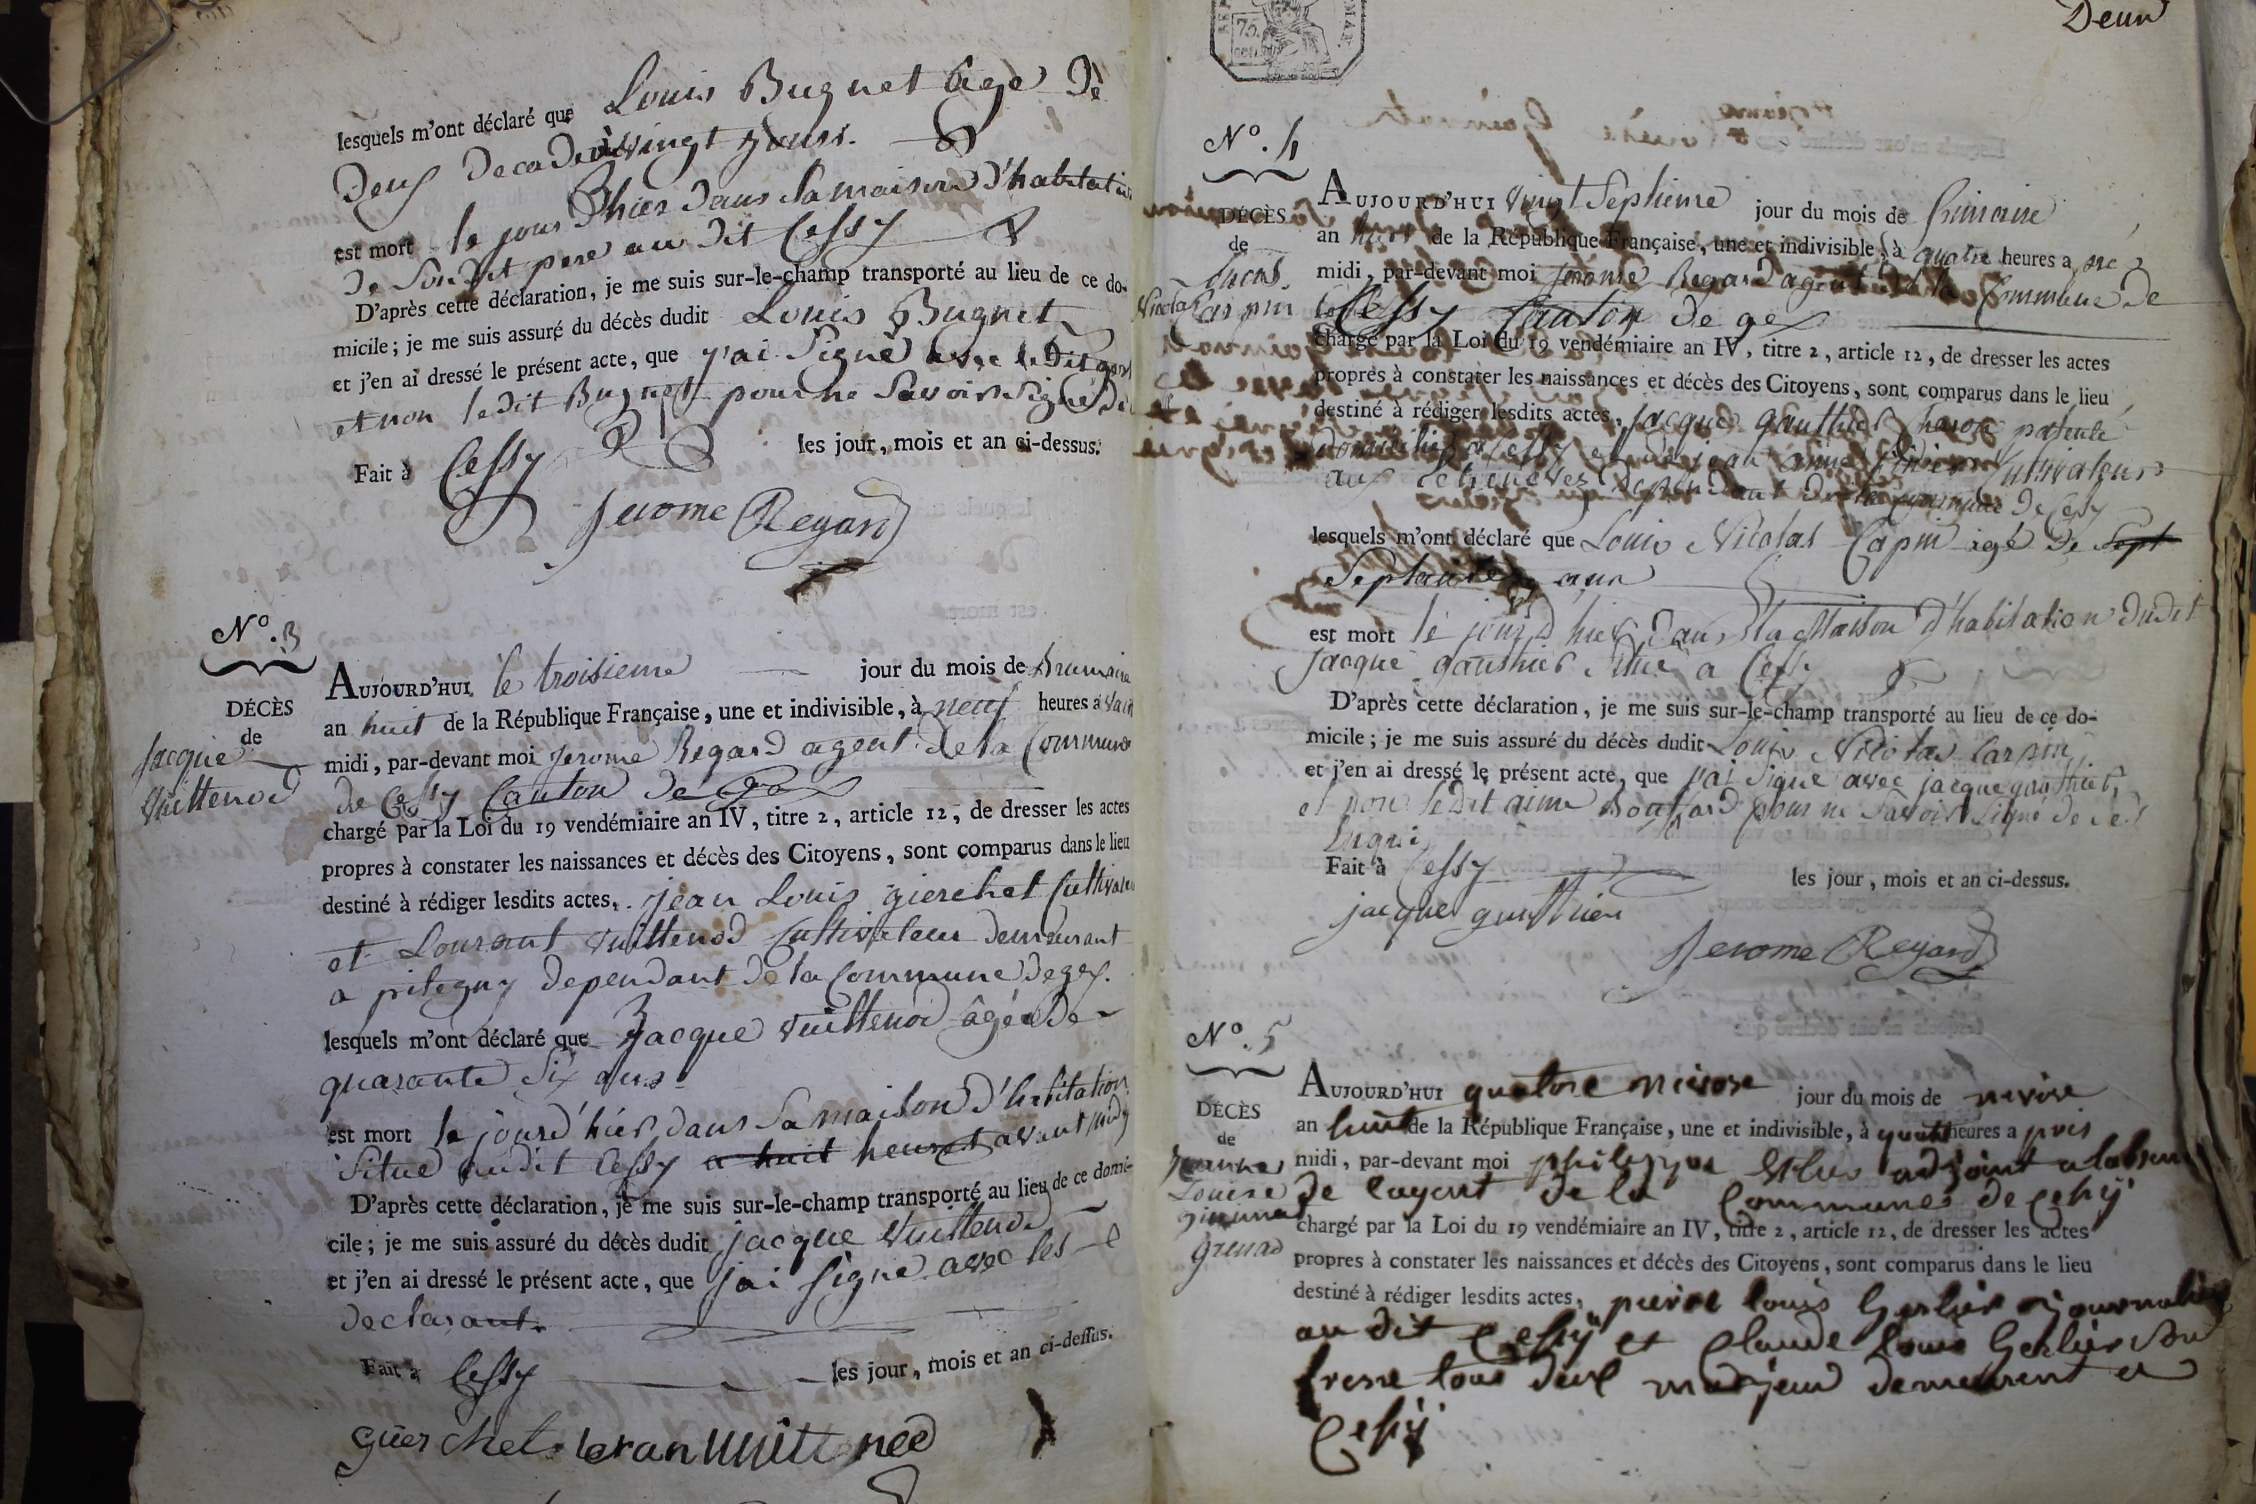 lesquels m'ont déclaré que Louis Bugnet âgé De
Deux Decade ou vingt jours.
est mort le jour D'hier dans Sa maison d'habitation
de Son dit pere au dit Cessy
D'après cette déclaration, je me suis sur-le-champ transporté au lieu de ce do-
micile; je me suis assuré du décès dudit Louis Bugnet
et j'en ai dressé le présent acte, que j'ai Signé avec le Dit
et non ledit Bugnet pour ne Savoir Signé de
Fait à Cessy les jour, mois et an ci-dessus.
Jerome Regard
Nº. 3
DÉCÈS
de
Jacque
Vuittenod
AUJOURD'HUI le troisieme jour du mois de brumaire
an huit de la République Française, une et indivisible, à neuf heures a vant
midi, par-devant moi Jerome Regard agent de la Commune
de Cessy Canton de Gex
chargé par la Loi du 19 vendémiaire an IV, titre 2, article 12, de dresser les actes
propres à constater les naissances et décès des Citoyens, sont comparus dans le lieu
destiné à rédiger lesdits actes, jean Louis gierchet Cultivateur
et Lourant vuittenod Cultivateur demeurant
a pitegny dependant de la Commune de gex.
lesquels m'ont déclaré que Jacque vuittenod âgé De
quarante Six ans
est mort le jour d'hier dans Sa maison d'habitation
Situé audit Cessy a huit heures avant midy
D'après cette déclaration, je me suis sur-le-champ transporté au lieu de ce domi-
cile; je me suis assuré du décès dudit jacque Vuittenod
et j'en ai dressé le présent acte, que jai signé avec les
declarant.
Fait à Cessy les jour, mois et an ci-dessus.
guerchet loran vuittenod
Deux
75.
Nº. 4
DÉCÈS
de
Louis
Nicolas Carpin
AUJOURD'HUI vingt Septieme jour du mois de frimaire
an huit de la République Française, une et indivisible, à quatre heures a
midi, par-devant moi Jerome Regard agent de la Commune de
Cessy Canton de gex
chargé par la Loi du 19 vendémiaire an IV, titre 2, article 12, de dresser les actes
propres à constater les naissances et décès des Citoyens, sont comparus dans le lieu
destiné à rédiger lesdits actes, jacque gauthier patenté
domicilié a Cessy et aimé Cultivateur
aux Dependant de la Commune de Cessy
lesquels m'ont déclaré que Louis Nicolas Capin âgé De Sept
Septante ans
est mort le jour d'hier dans la Maison d'habitation dudit
jacque gauthier Situé a Cessy
D'après cette déclaration, je me suis sur-le-champ transporté au lieu de ce do-
micile; je me suis assuré du décès dudit Louis Nicolas Carpin
et j'en ai dressé le présent acte, que jai Signé avec jacque gauthier
et non ledit aimé pour ne Savoir Signé de ce
Fait à Cessy les jour, mois et an ci-dessus.
jacque gauthier
Jerome Regard
Nº. 5
DÉCÈS
de
Jeanne
Louise
grenad
AUJOURD'HUI quatre nivose jour du mois de nivose
an huit de la République Française, une et indivisible, à quatre heures a pres
midi, par-devant moi philippe adjoint a labsence
de lagent de la Communes de Cessy
chargé par la Loi du 19 vendémiaire an IV, titre 2, article 12, de dresser les actes
propres à constater les naissances et décès des Citoyens, sont comparus dans le lieu
destiné à rédiger lesdits actes, pierre louis Gerlier journalier
au dit Cessy et Claude louis Gerlier Son
frere tous deux majeur demeurent a
Cessy